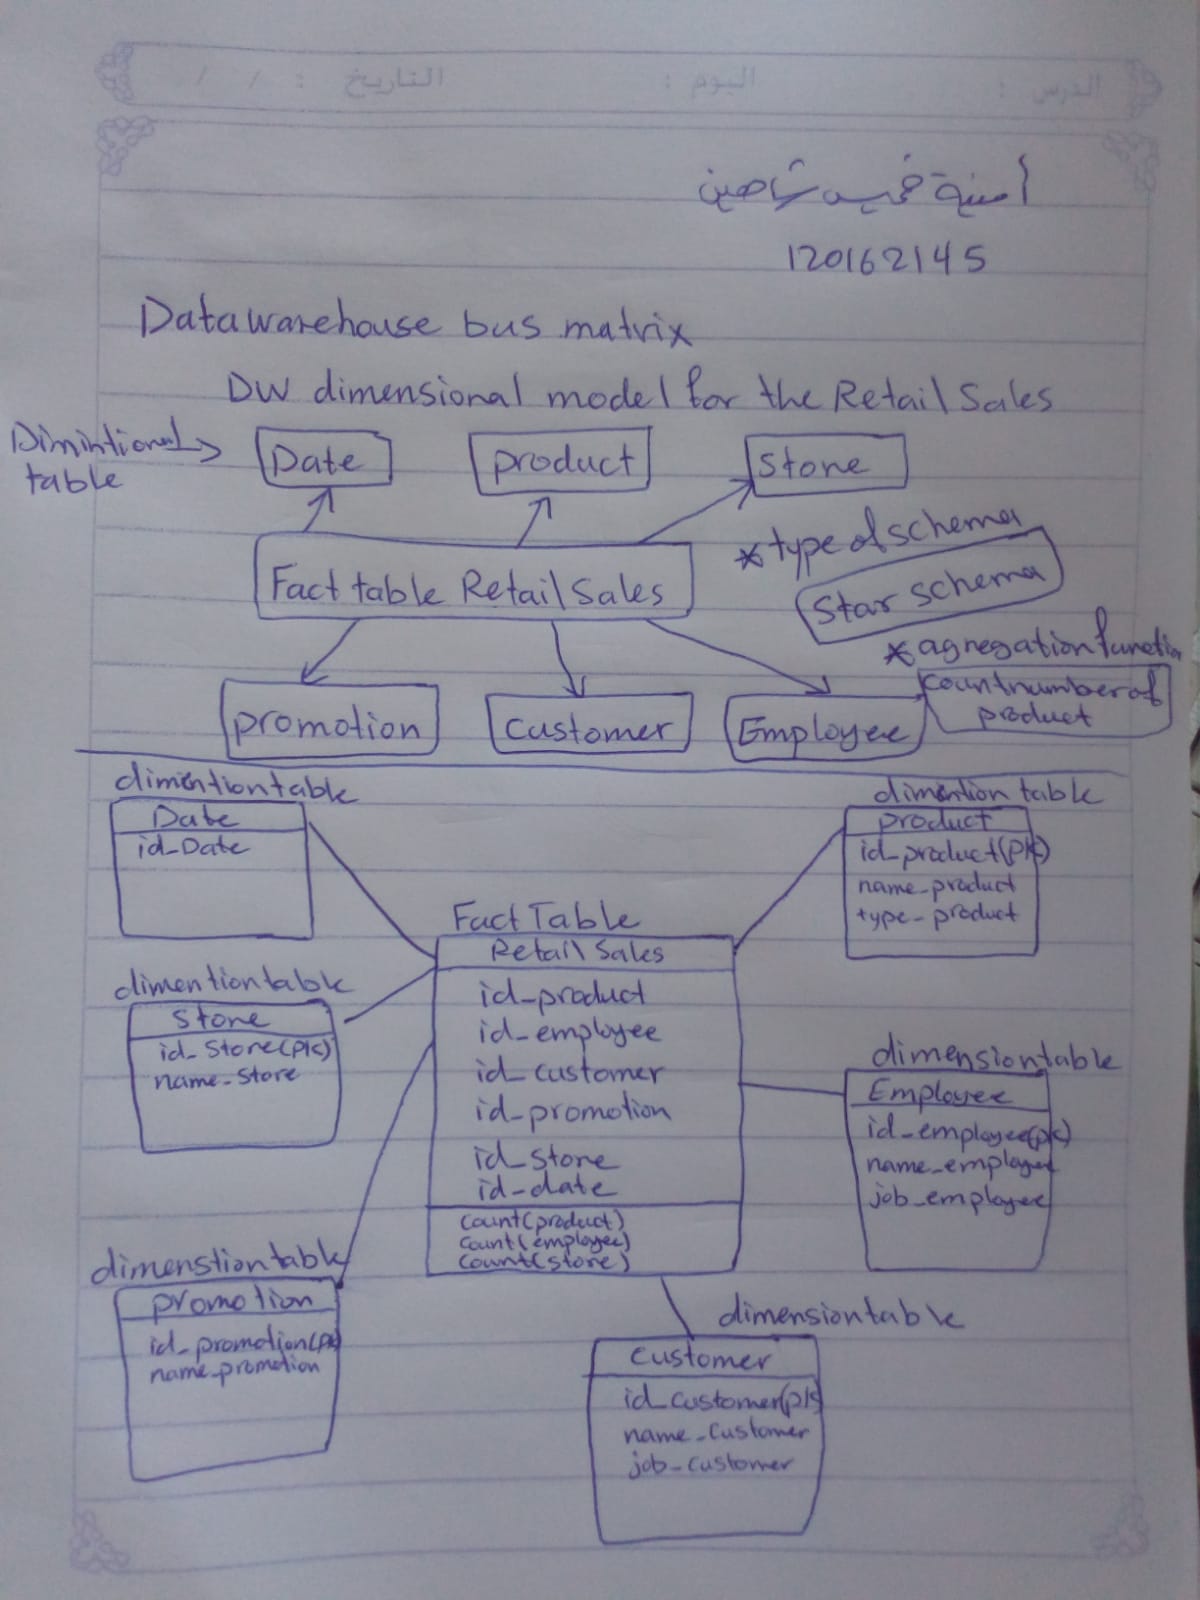 الدرس : اليوم : التاريخ : / /
أمنية شاهين
120162145
Datawarehouse bus matrix
DW dimensional model for the Retail Sales
Dimintional
table
Date
product
Store
Fact table Retail Sales
* type of schema
Star schema
* agregation function
count number of
product
promotion
Customer
Employee
dimention table
Date
id_Date
dimention table
product
id_product(pk)
name_product
type_product
Fact Table
Retail Sales
id_product
id_employee
id_customer
id_promotion
id_store
id_date
Count(product)
Count(employee)
Count(store)
dimention table
Store
id_Store(pk)
name_store
dimension table
Employee
id_employee(pk)
name_employee
job_employee
dimenstion table
promotion
id_promotion(pk)
name_promotion
dimension table
Customer
id_customer(pk)
name_customer
job_customer